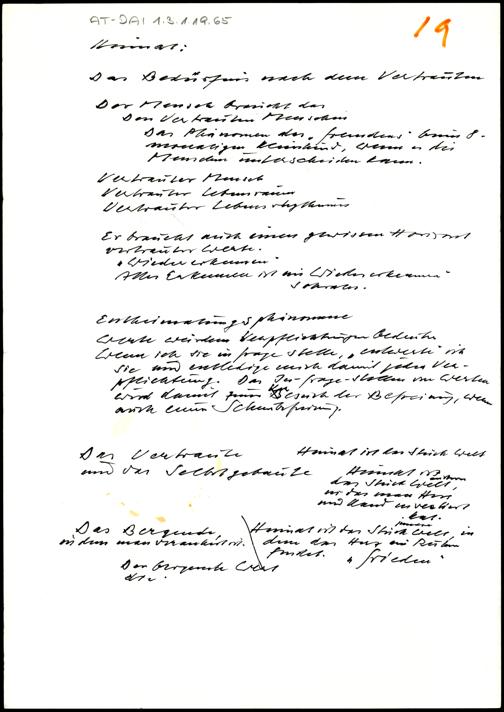 AT-DAI 1.3.1.19.65
19
Heimat:
Das Bedürfnis nach dem Vertrauten
Der Mensch braucht das
Den Vertrauten Menschen
Das Phänomen des "fremdens" beim 8-
monatigen Kleinkind, wenn es die
Menschen unterscheiden kann.
Vertrauter Mensch
Vertrauter Lebensraum
Vertrauter Lebensrhythmus
Er braucht auch einen gewissen Horizont
vertrauter Werte.
"Wiedererkennen"
Alles Erkennen ist ein Wiedererkennen"
Sokrates.
Entheimatungsphänomene
Werte würden Verpflichtungen bedeuten
Wenn ich sie in frage stelle, "entwerte" ich
sie und entledige mich damit jeder Ver-
pflichtung. Das In-frage-stellen von Werten
wird damit zum Versuch der Befreiung, wenn
auch einer Scheinbefreiung.
Das Vertraute
und das Selbstgebaute
Heimat ist das Stück Welt
Heimat ist
das Stück Welt,
in das man Herz
und Hand investiert
hat.
Das Bergende
in dem man verankert ist.
Der bergende Wert
etc.
Heimat ist das Stück Welt, in
dem das Herz in Ruhe
findet.
"frieden"